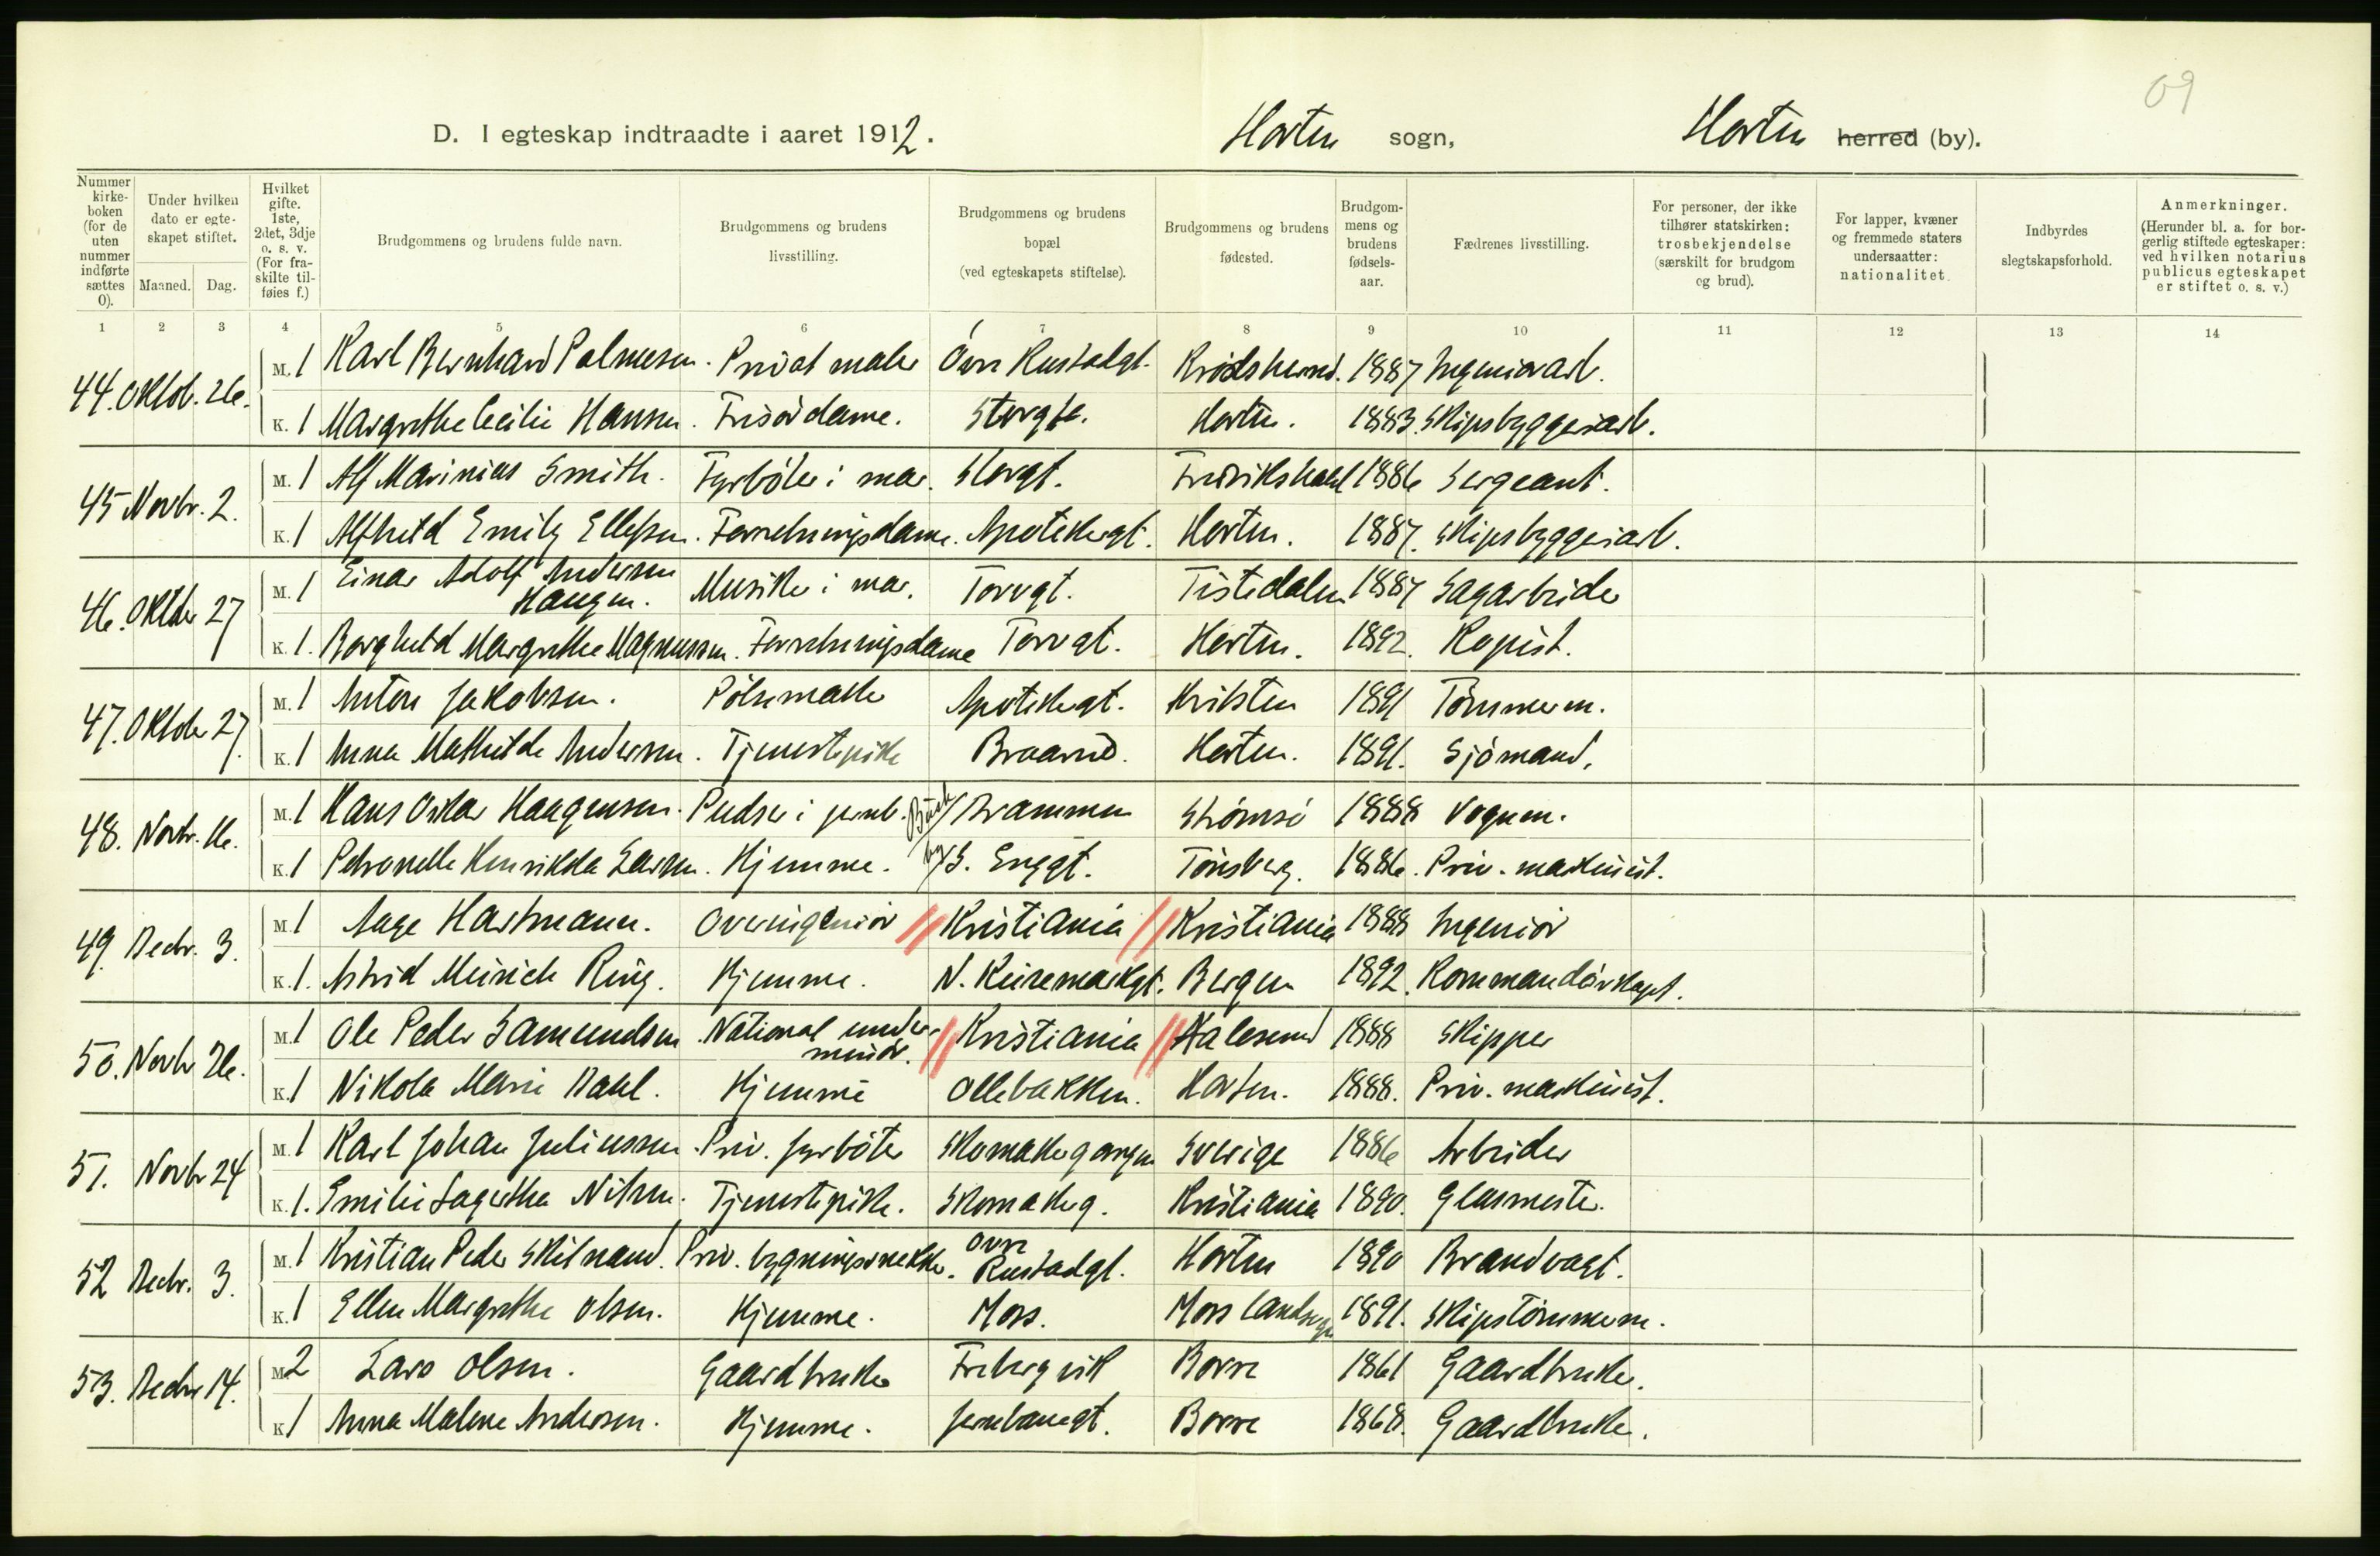 09
D. I egteskap indtraadte i aaret 1912. Horten sogn, Horten herred (by).
Nummer kirke-boken (for de uten nummer indførte sættes 0).
Under hvilken dato er egte-skapet stiftet.
Maaned. Dag.
Hvilket gifte. 1ste, 2det, 3dje o. s. v. (For fra-skilte til-føies f.)
Brudgommens og brudens fulde navn.
Brudgommens og brudens livsstilling.
Brudgommens og brudens bopæl (ved egteskapets stiftelse).
Brudgommens og brudens fødested.
Brudgom-mens og brudens fødsels-aar.
Fædrenes livsstilling.
For personer, der ikke tilhører statskirken: trosbekjendelse (særskilt for brudgom og brud).
For lapper, kvæner og fremmede staters undersaatter: nationalitet.
Indbyrdes slegtskapsforhold.
Anmerkninger. (Herunder bl. a. for bor-gerlig stiftede egteskaper: ved hvilken notarius publicus egteskapet er stiftet o. s. v.)
1 2 3 4 5 6 7 8 9 10 11 12 13 14
44. Oktob. 26. M. 1 Karl Bernhard Palmesen. Privat maler Övre Rustadgt. Krödsherred. 1887 Ingeniörarb.
K. 1 Margrethe Cecilie Hansen. Frisördame. Storgt. Horten. 1883. Skipsbyggeriarb.
45 Novbr. 2. M. 1 Alf Marinius Smith. Fyrböter i mar. Storgt. Fredrikshald 1886 Sergeant.
K. 1 Alfhild Emily Ellefsen. Forretningsdame. Apotekergt. Horten. 1887. Skipsbyggeriarb.
46. Oktbr 27 M. 1 Einar Adolf Andersen Haugen. Musiker i mar. Torvgt. Tistedalen 1887 Sagarbeider
K. 1. Borghild Margrethe Magnussen. Forretningsdame Torvgt. Horten. 1892. Kopist.
47. Oktober 27. M. 1 Anton Jakobsen. Pölsemaker Apotekergt. Holsten 1891 Tömmerm.
K. 1 Anna Mathilde Andersen. Tjenestepike Braarud. Horten. 1891. Sjömand.
48. Novbr. 16. M. 1 Hans Oskar Haagensen. Pudser i jernb. Drammen Strömsö 1888 Vognm.
K. 1 Petronelle Henrikka Larsen. Hjemme. Enggt. Tönsberg. 1886. Priv. maskinist.
49. Decbr. 3. M. 1 Aage Hartmann. Overingeniör Kristiania Kristiania 1888 Ingeniör
K. 1. Astrid Meinich Ring. Hjemme. N. Keisemarkgt. Bergen 1892. Kommandörkapt.
50. Novbr 26. M. 1 Ole Peder Samundsen National under minör. Kristiania Aalesund 1888 Skipper
K. 1 Nikola Marie Dahl. Hjemme Ollebakken. Horten. 1888. Priv. maskinist.
51. Novbr 24 M. 1 Karl Johan Juliussen. Priv. fyrböter Skomakergangen Sverige 1886 Arbeider
K. 1. Emilie Lagertha Nilsen. Tjenestepike. Skomakerg. Kristiania 1890. Glasmester.
52 Decbr. 3. M. 1 Kristian Peder Skilnand. Priv. bygningssnekker. Övre Rustadgt. Horten 1890 Brandvagt.
K. 1 Ellen Margrethe Olsen. Hjemme. Moss. Moss landsogn 1891. Skipstömmerm.
53. Decbr 14. M. 2 Lars Olsen. Gaardbruker Frebergvik Borre 1861 Gaardbruker.
K 1 Anna Malene Andersen. Hjemme. Jernbanegt. Borre 1868. Gaardbruker.